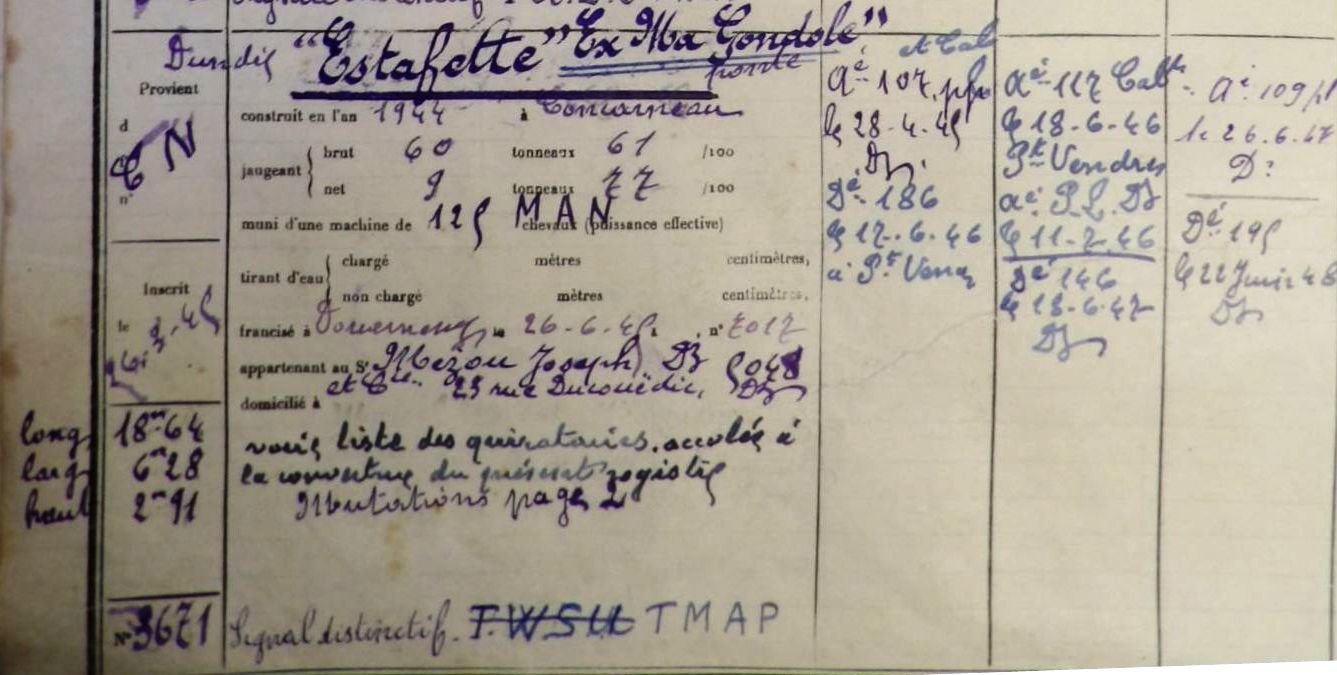 Dundée "Estafette" "Ex Ma Gondole"
ponté
Provient
d
CN
n°
construit en l'an 1944 à Concarneau
jaugeant
brut 60 tonneaux 61 /100
net 9 tonneaux 77 /100
muni d'une machine de 125 MAN chevaux (puissance effective)
tirant d'eau
chargé mètres centimètres,
non chargé mètres centimètres,
Inscrit
le 26.3.45
francisé à Douarnenez le 26-6-45, n° 7017
appartenant au Sr Mezou Joseph Dz 5048
et Cie. 23 rue Ducouëdic, Dz
domicilié à
voir liste des quirataires. accolée à
la couverture du présent registre
Mutations page 2
long 18m64
larg 6m28
haut 2m91
N° 3671
Signal distinctif. TWSU TMAP
et Cab
Aé 107. pp
le 28-4-45
Dz.
Dé 186
le 17-6-46
à Pt Vend
Aé 117 Cab
le 18-6-46
Pt Vendres
aé P.L. Dz
le 11-7-46
Dé 146
le 18-6-47
Dz
Aé 109
le 26.6.47
Dz
Dé 195
le 22 Juin 48
Dz